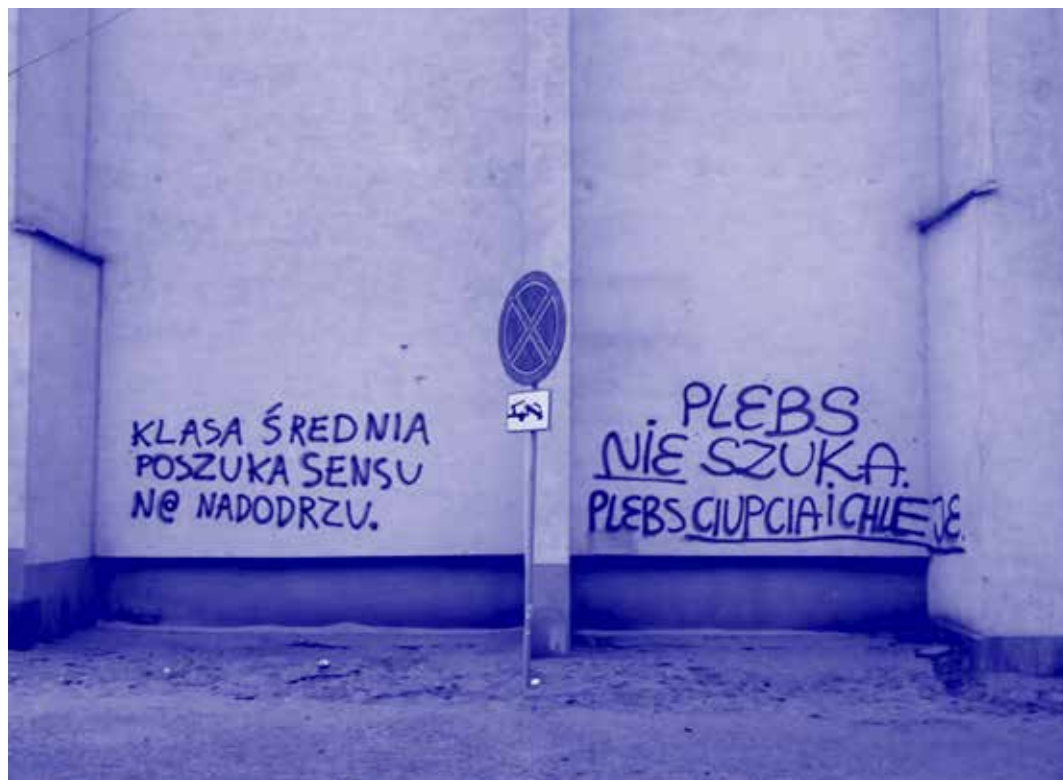 KLASA ŚREDNIA
POSZUKA SENSU
N@ NADODRZU.
PLEBS
NIE SZUKA.
PLEBS CIUPCIA i CHLEJE.